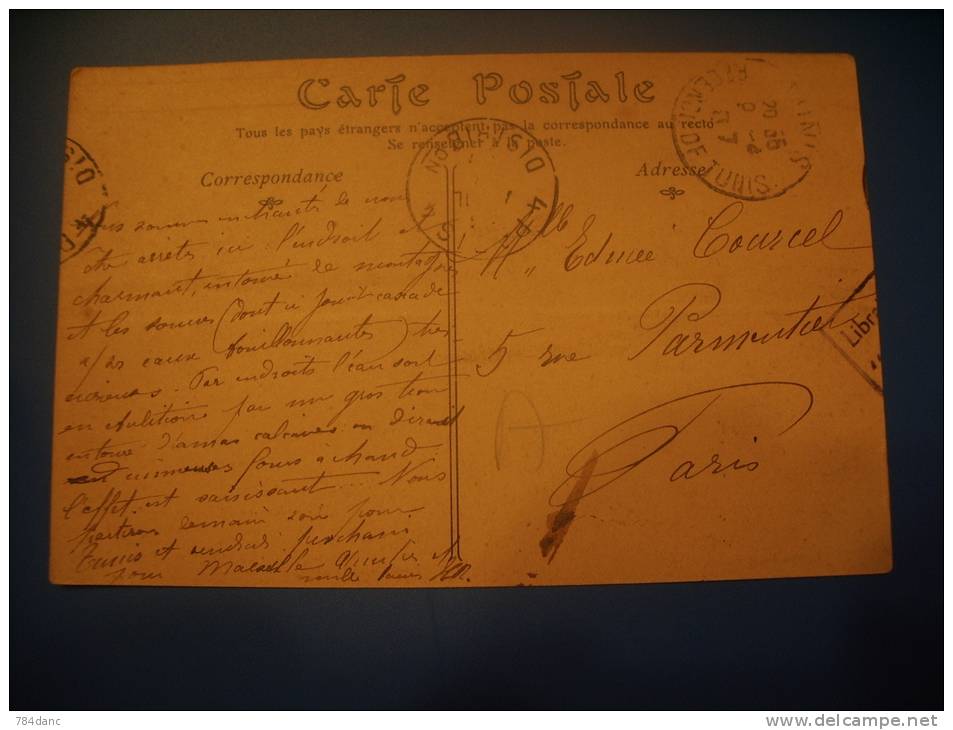 Carte Postale
Tous les pays étrangers n'acceptent pas la correspondance au recto
Se renseigner à la poste.
Correspondance
Adresse
Nous sommes enchantés de nous
être arrêtés ici l'endroit est
charmant, entouré de montagnes
et les sources (dont ci joint cascade
eaux bouillonnantes) très
curieuses. Par endroits l'eau sort
en ébulition par un gros trou
entouré d'amas calcaires on dirait
immenses fours à chaud.
l'effet est saisissant... Nous
partirons demain soir pour
Tunis et vendredi prochain
pour Marseille
mille
Mlle Edmée Courcel
5 rue Parmentier
Paris
REGENCE DE TUNIS
TUNIS
20 35
Libra
784danc
www.delcampe.net